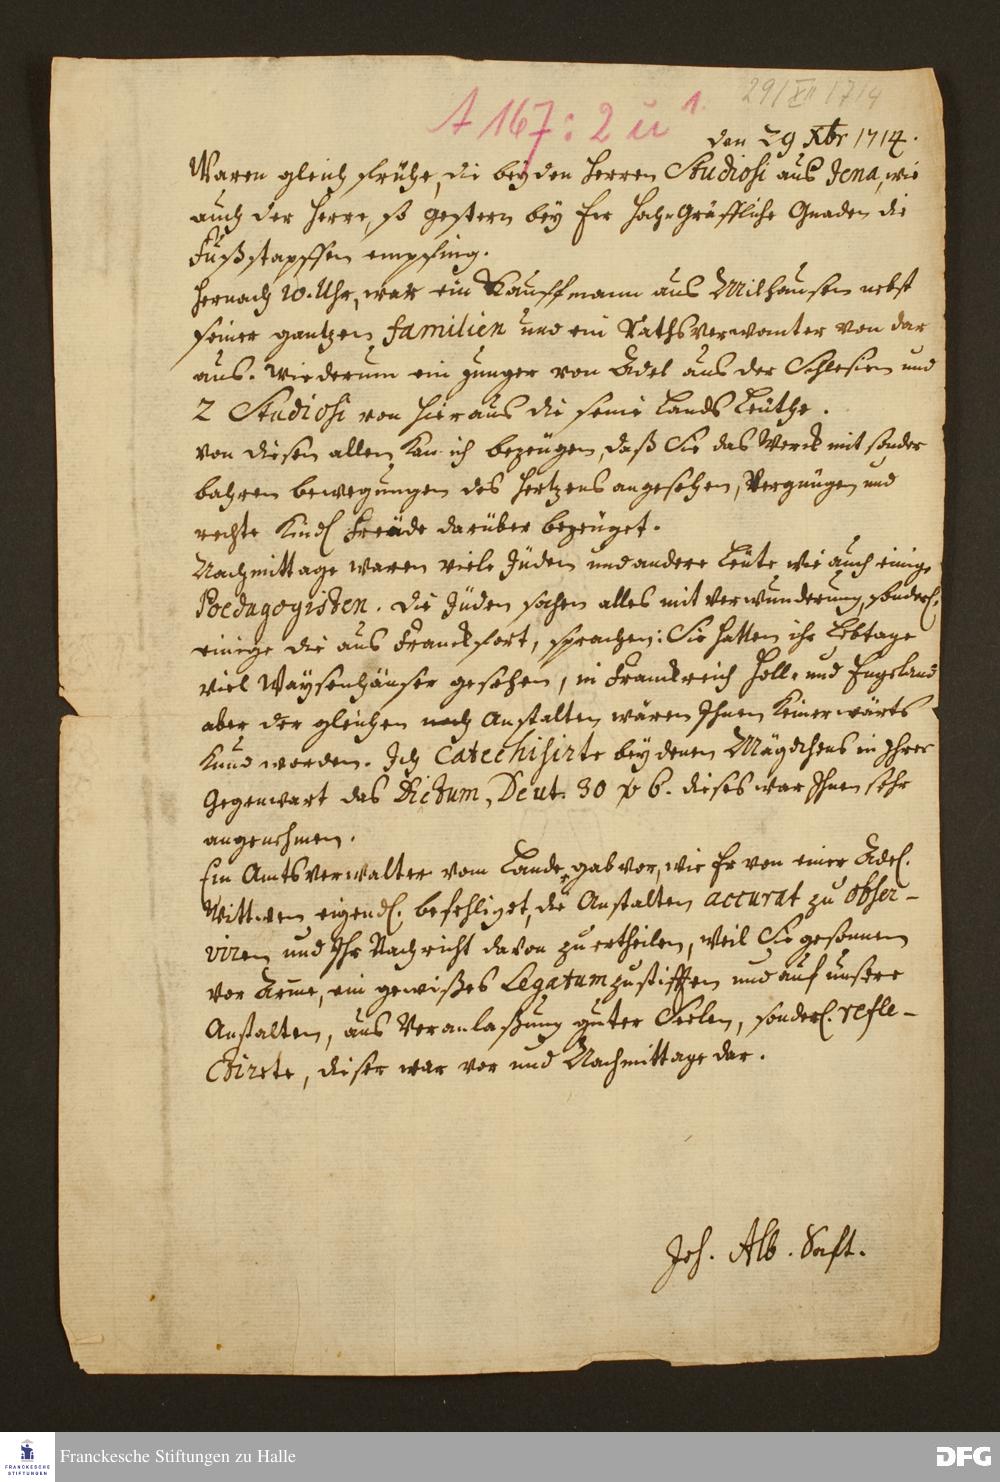 29/XII 1714
A 167: 2 u 1.
den 29 Xbr 1714.
Waren gleich frühe, die beyden Herren Studiosi aus Jena, wie
auch der Herr, so gestern bey Ew Hoch-Gräffliche Gnaden die
Fußstapffen empfing.
Hernach 10. Uhr, war ein Kauffmann aus Milhausen nebst
seiner gantzen familien und ein Rathsverwanter von dar
aus. Wiederum ein junger von Adel aus der Schlesien und
2 Studiosi von hier aus die seine Lands Leüthe.
von diesen allen kan ich bezeügen, daß Sie das Werck mit sonder
bahren bewegungen des Hertzens angesehen, Vergnügen und
rechte Kindl Freüde darüber bezeüget.
Nachmittage waren viele Jüden und andere Leüte wie auch einige
Poedagogisten. Die Jüden sahen alles mit Verwunderung, sonderl.
einige die aus Franckfort, sprachen: Sie hatten ihr Lebtage
viel Waysenhäuser gesehen, in Franckreich Holl- und Engeland
aber der gleichen noch Anstalten wären Ihnen keinerwärts
kund worden. Ich Catechisirte bey denen Mägdchens in Ihrer
Gegenwart das Dictum, Deut. 30 v 6. dieses war Ihnen sehr
angenehmen.
Ein Amtsverwalter vom Lande, gab vor, wie Er von einer Adel.
Wittwen eigendl. befehliget, die Anstalten accurat zu obser-
viren und Ihr Nachricht davon zu ertheilen, weil Sie gesonnen
vor Arme, ein gewißes Legatum zu stifften und auf unsere
Anstalten, aus Veranlaßung guter Seelen, sonderl. refle-
ctirte, dieser war vor und Nachmittage dar.
Joh. Alb. Saft.
Franckesche Stiftungen zu Halle
FRANCKESCHE
STIFTUNGEN
DFG